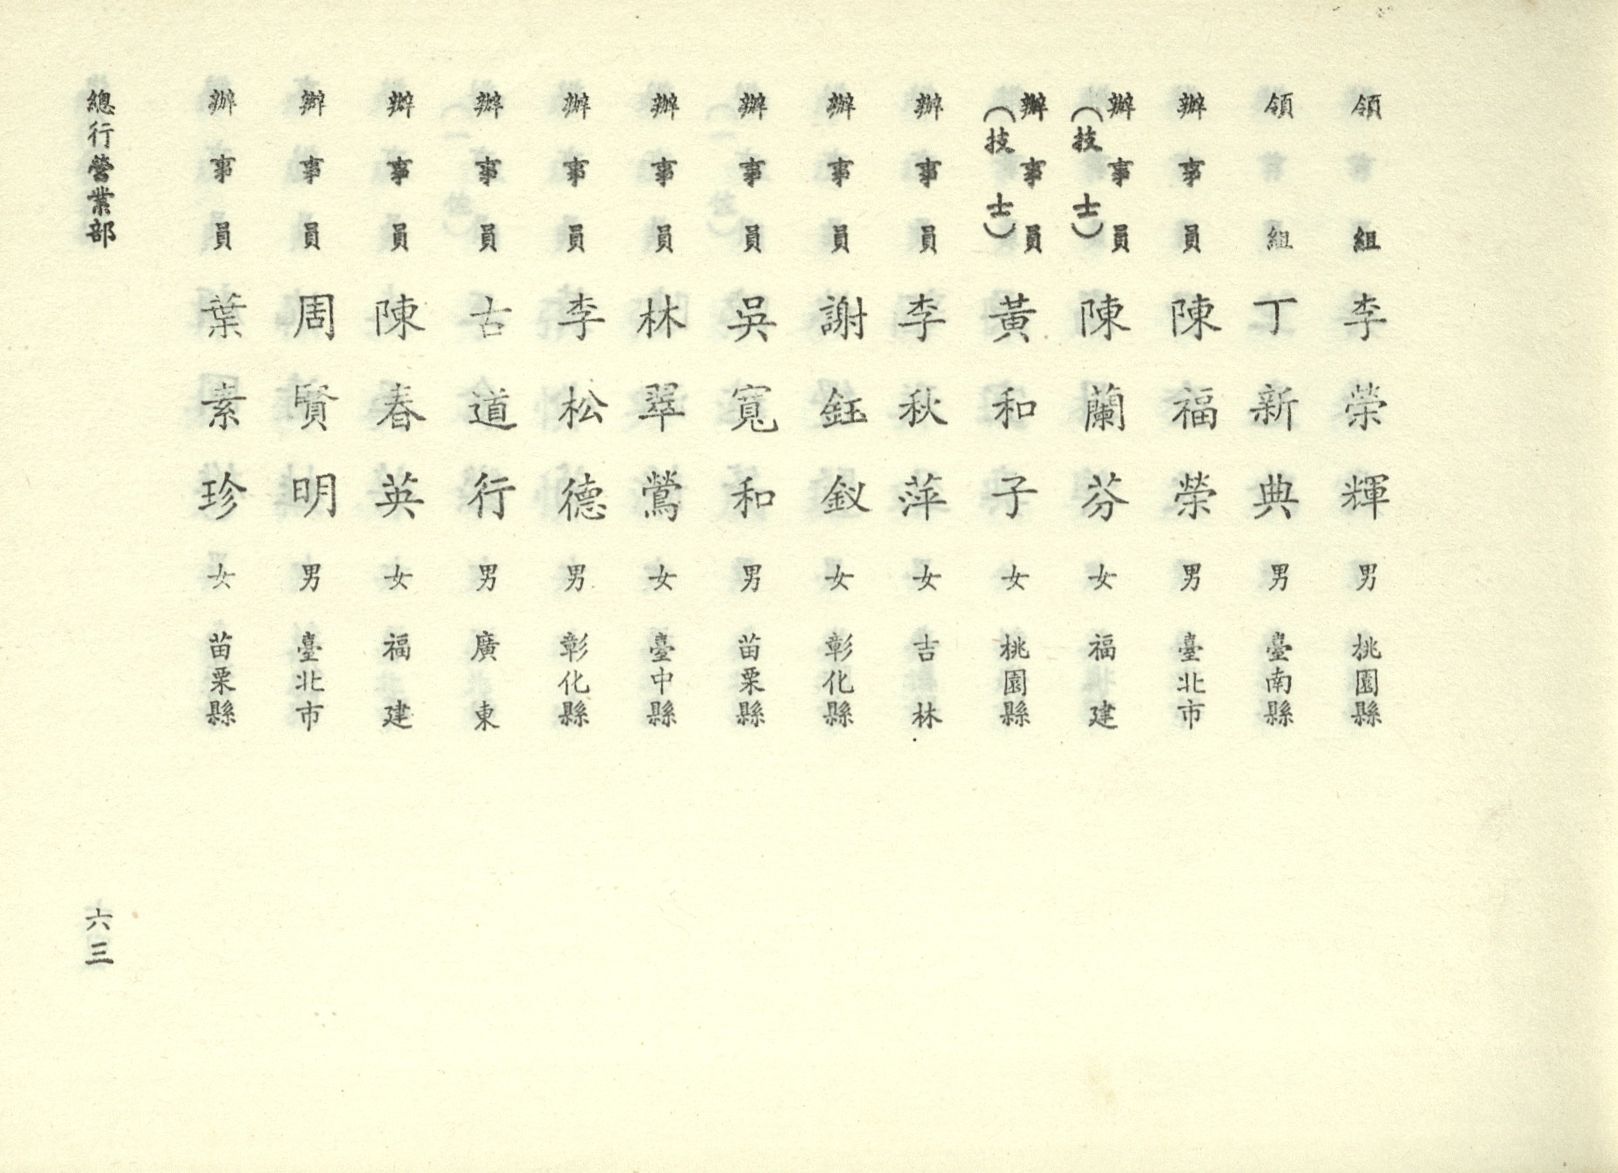 領組 李榮輝 男 桃園縣
領組 丁新典 男 臺南縣
辦事員 陳福榮 男 臺北市
辦事員（技士） 陳蘭芬 女 福建
辦事員（技士） 黃和子 女 桃園縣
辦事員 李秋萍 女 吉林
辦事員 謝鈺釵 女 彰化縣
辦事員 吳寬和 男 苗栗縣
辦事員 林翠鶯 女 臺中縣
辦事員 李松德 男 彰化縣
辦事員 古道行 男 廣東
辦事員 陳春英 女 福建
辦事員 周賢明 男 臺北市
辦事員 葉素珍 女 苗栗縣
總行營業部 六三